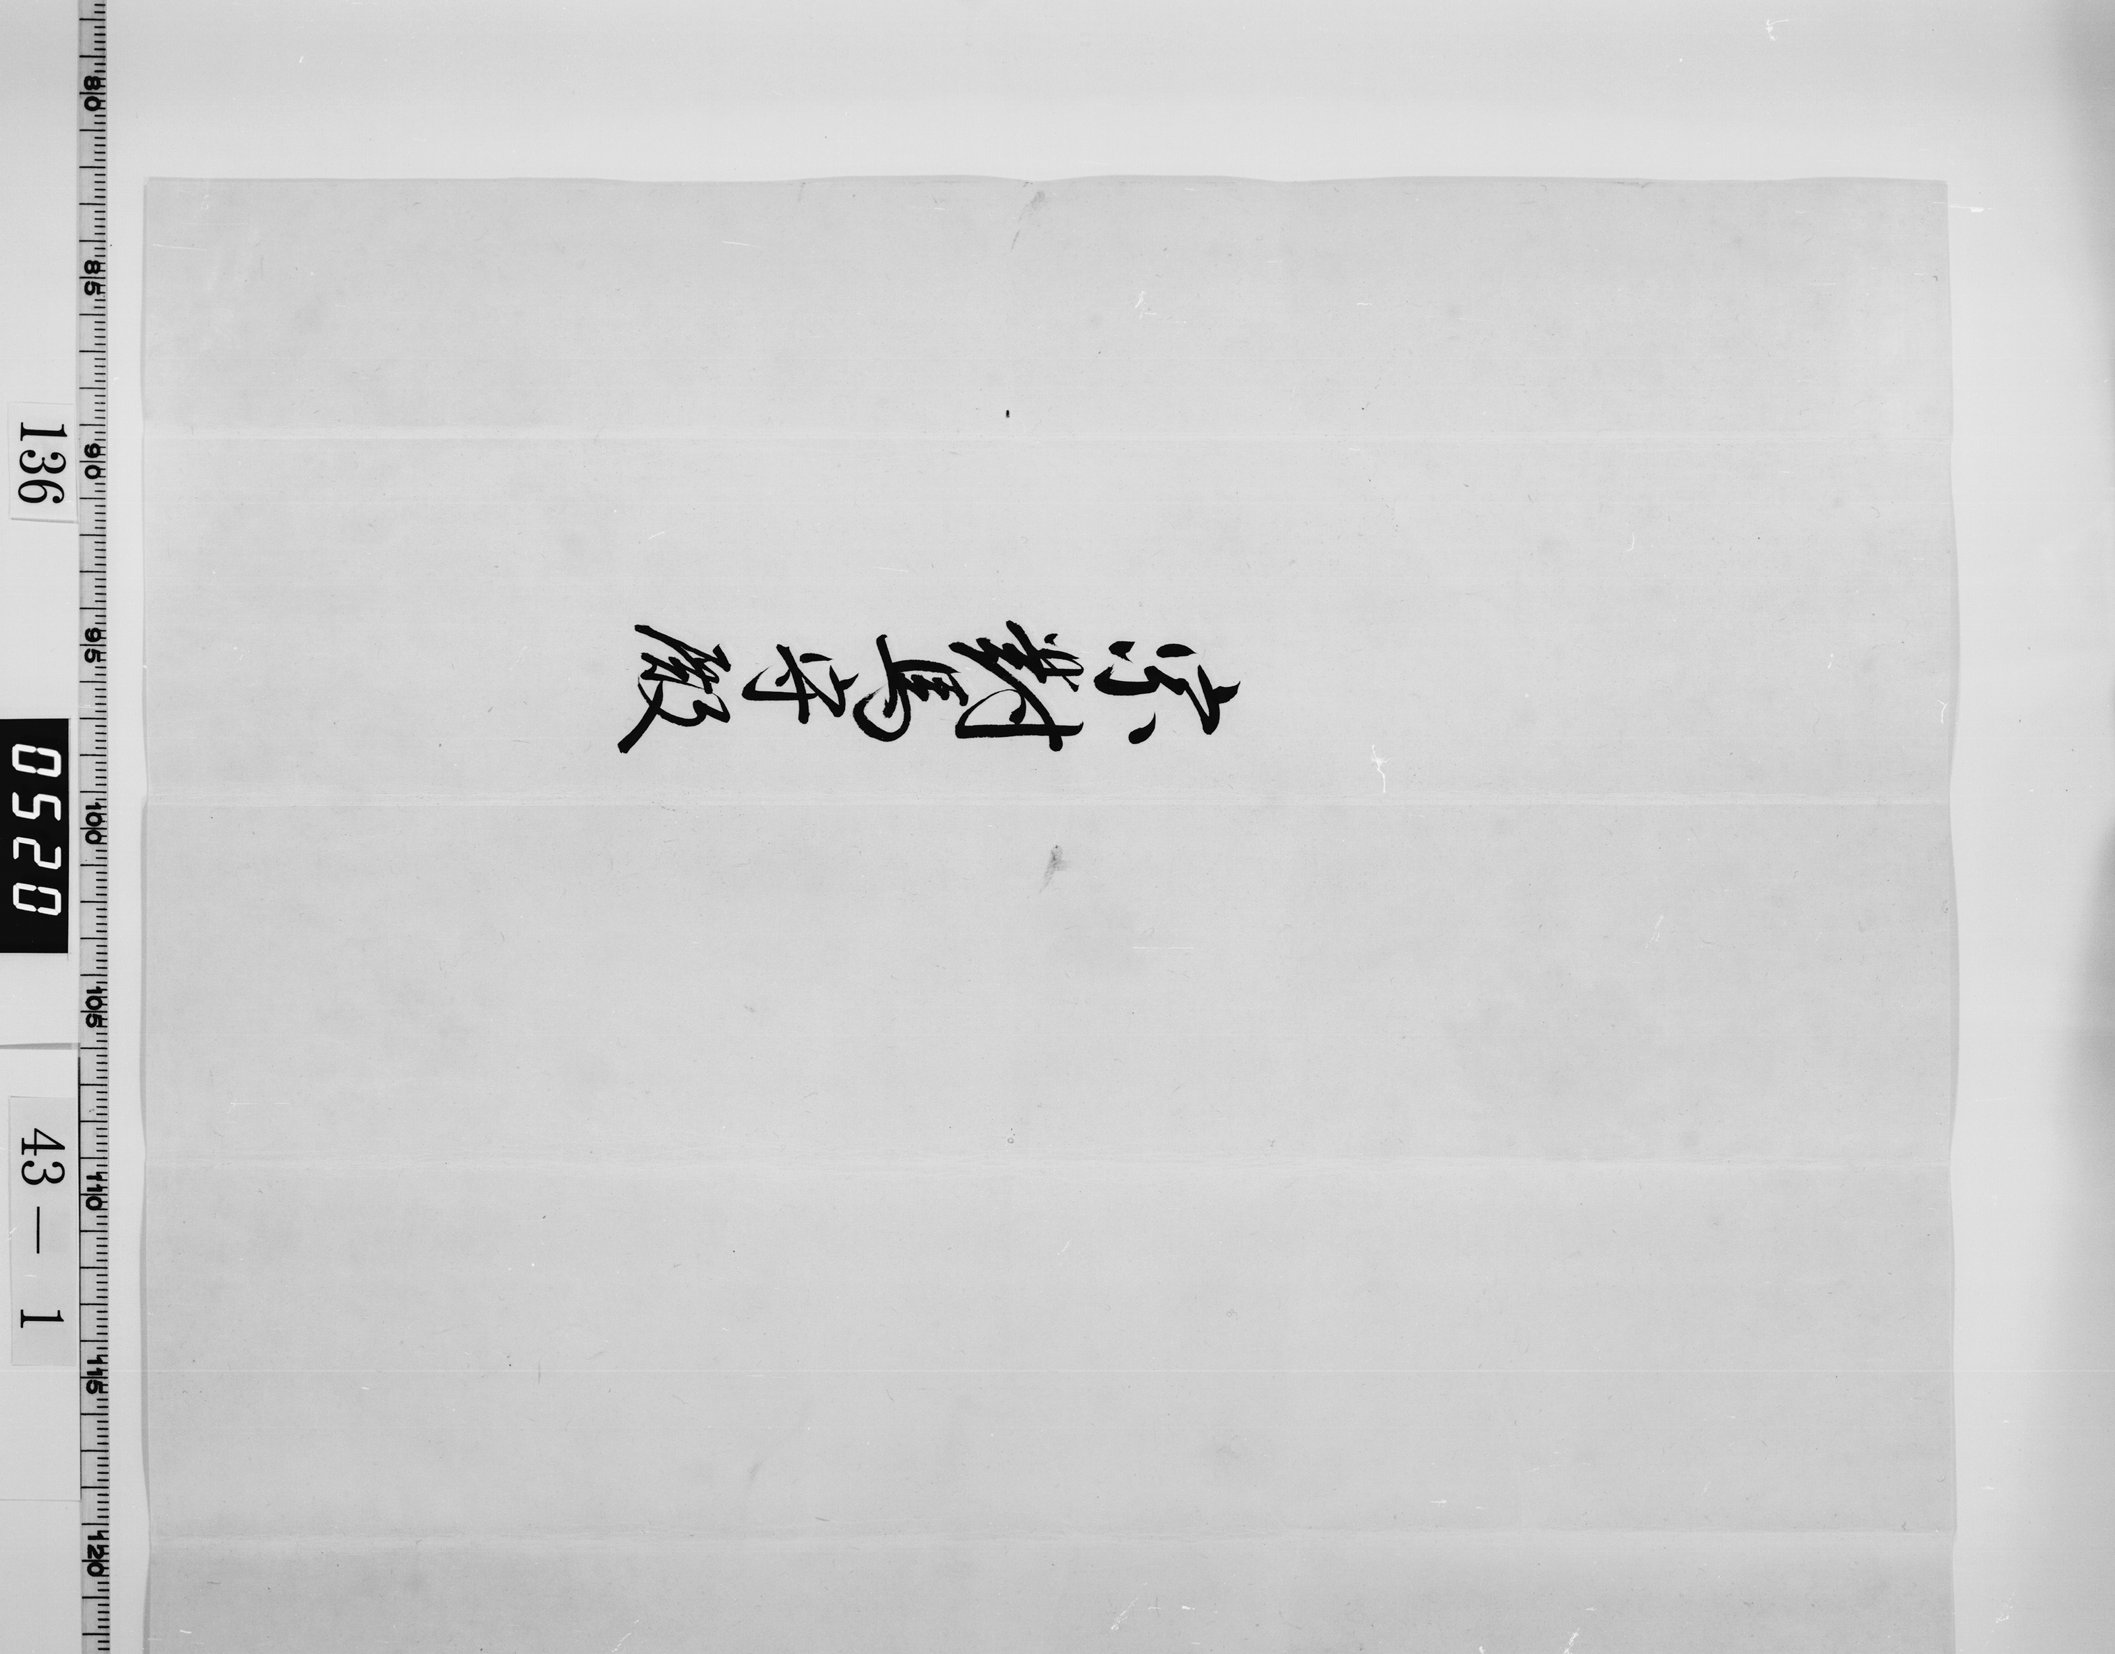 宗對馬守殿
136
0520
43 — 1
80 85 90 95 100 105 110 115 120